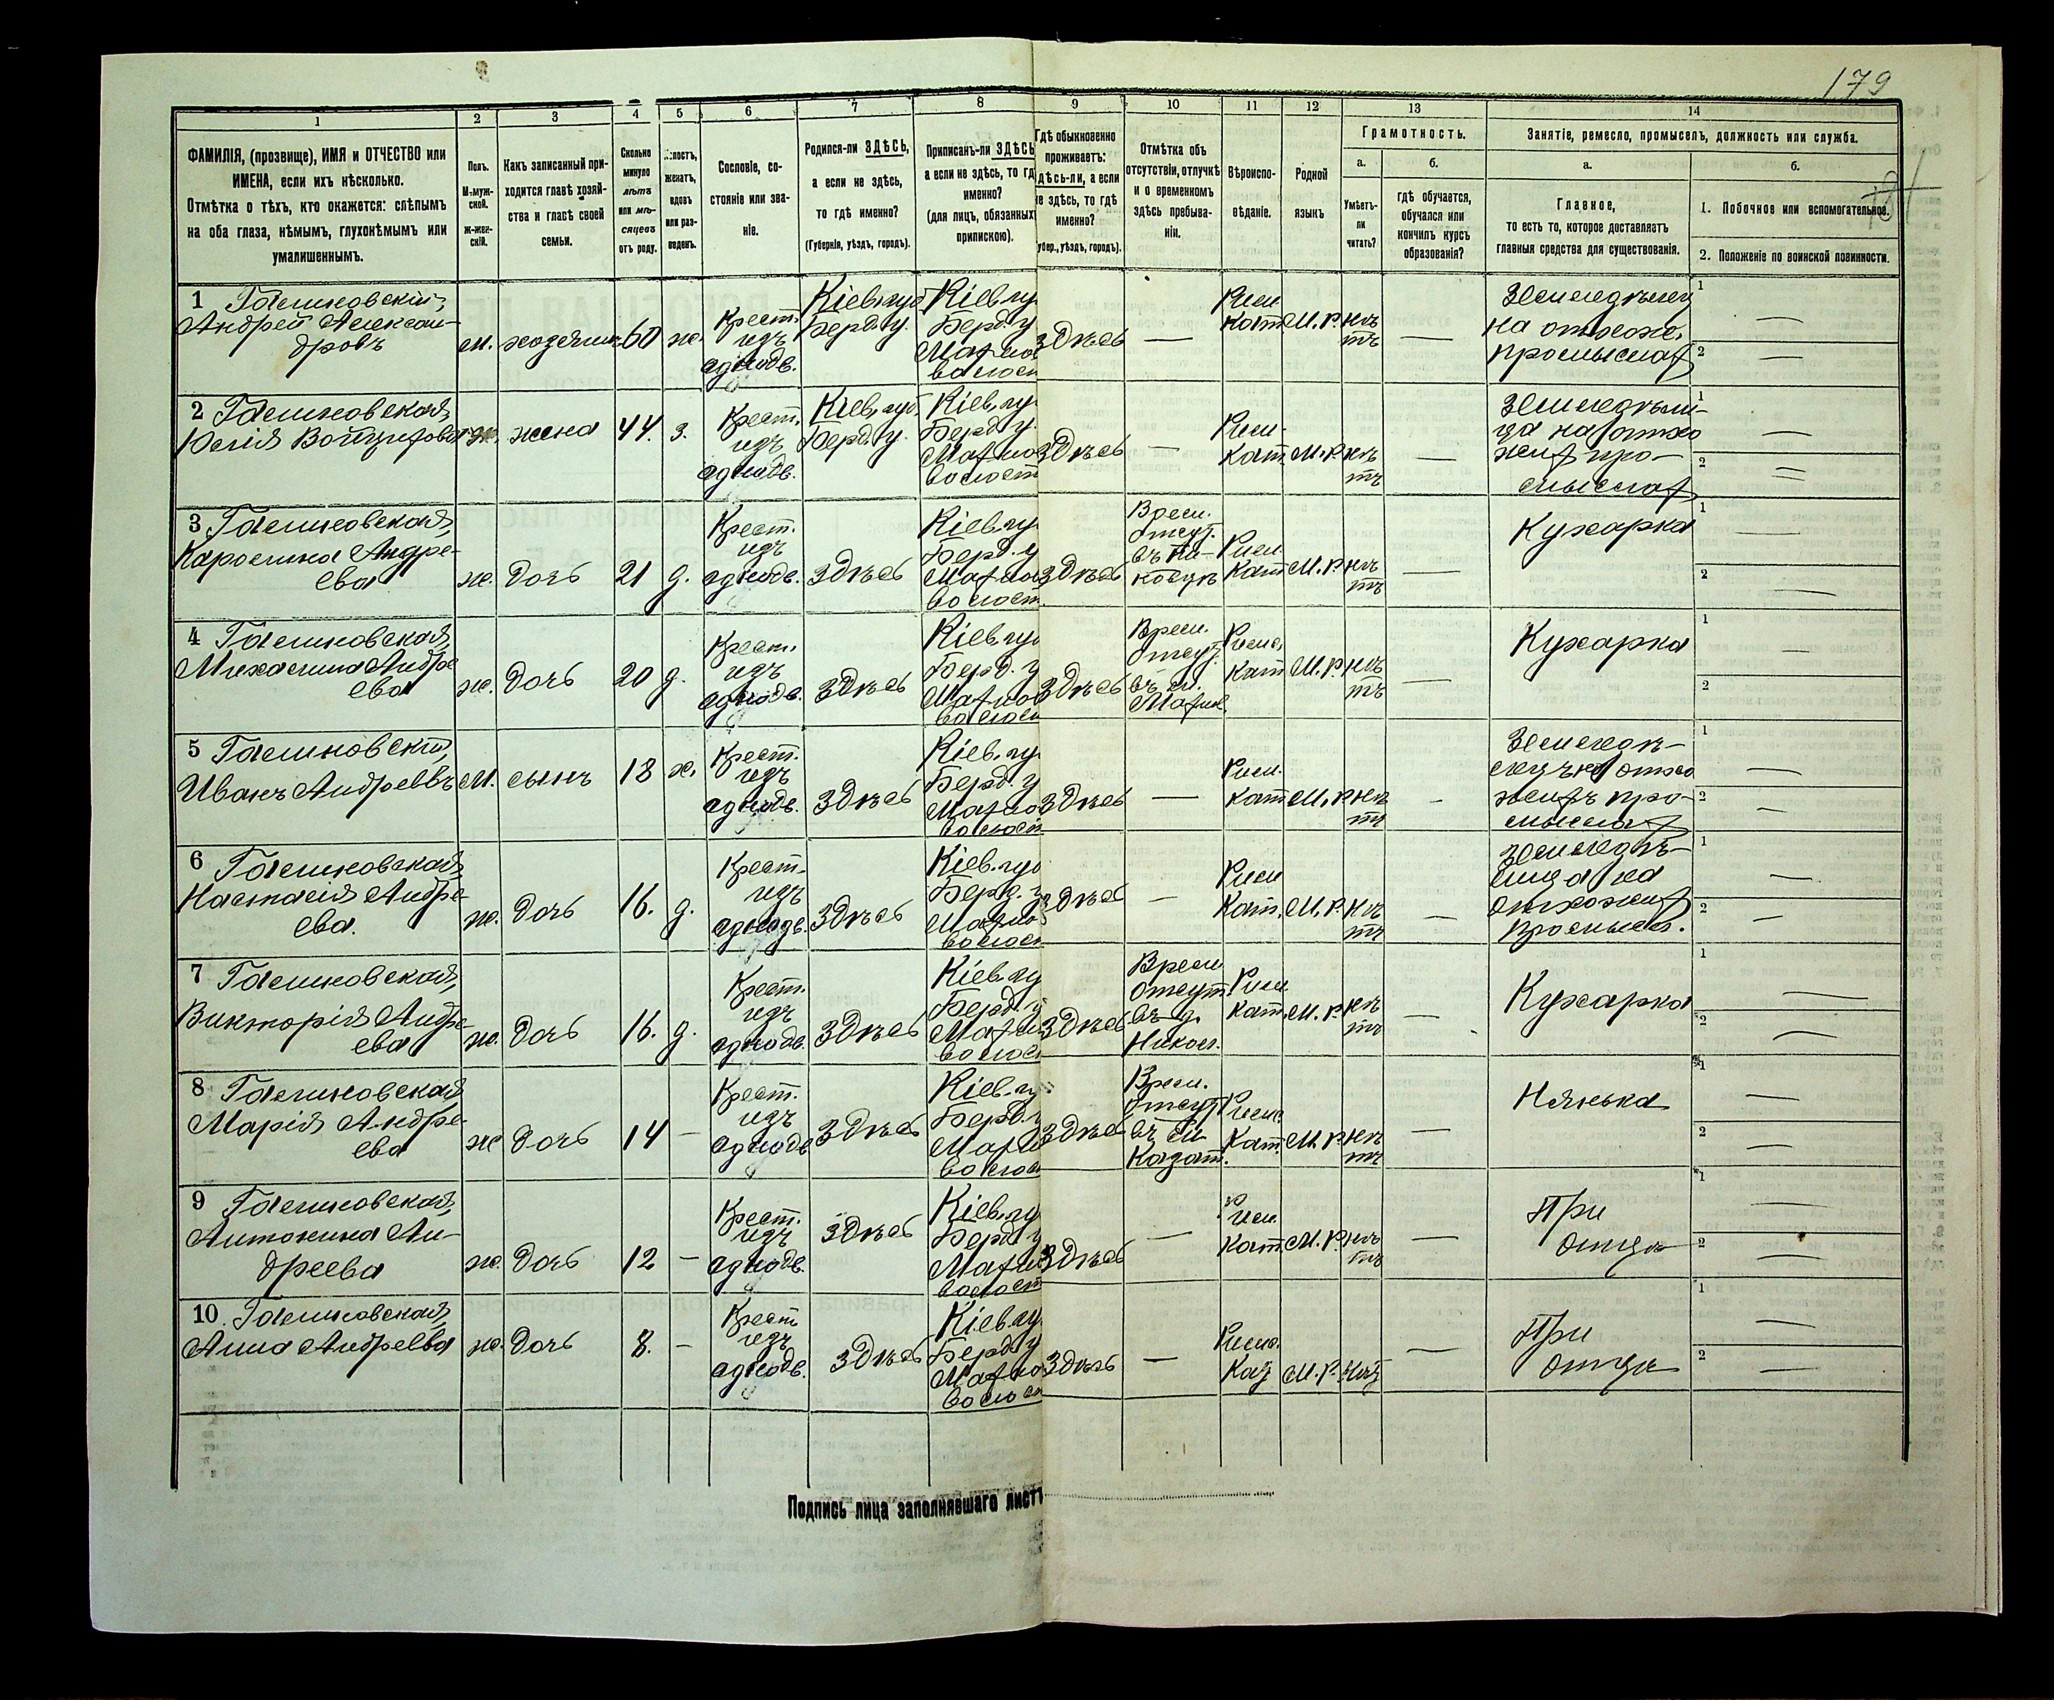 179
1
2
3
4
5
6
7
8
9
10
11
12
13
14
ФАМИЛІЯ, (прозвище), ИМЯ и ОТЧЕСТВО или
ИМЕНА, если ихъ нѣсколько.
Отмѣтка о тѣхъ, кто окажется: слѣпымъ
на оба глаза, нѣмымъ, глухонѣмымъ или
умалишеннымъ.
Полъ.
М-муж-
ской.
Ж-жен-
скій.
Какъ записанный при-
ходится главѣ хозяй-
ства и главѣ своей
семьи.
Сколько
минуло
лѣтъ
или мѣ-
сяцевъ
отъ роду.
женатъ,
вдовъ
или раз-
веденъ.
Сословіе, со-
стояніе или зва-
ніе.
Родился-ли ЗДѢСЬ,
а если не здѣсь,
то гдѣ именно?
(Губернія, уѣздъ, городъ).
Приписанъ-ли ЗДѢСЬ
а если не здѣсь, то гд
именно?
(для лицъ, обязанных
припискою).
Гдѣ обыкновенно
проживаетъ:
здѣсь-ли, а если
не здѣсь, то гдѣ
именно?
убер., уѣздъ, городъ).
Отмѣтка объ
отсутствіи, отлучкѣ
и о временномъ
здѣсь пребыва-
ніи.
Вѣроиспо-
вѣданіе.
Родной
языкъ
Грамотность.
а.
б.
Умѣетъ-
ли
читать?
гдѣ обучается,
обучался или
кончилъ курсъ
образованія?
Занятіе, ремесло, промыселъ, должность или служба.
а.
б.
Главное,
то есть то, которое доставляетъ
главныя средства для существованія.
1. Побочное или вспомогательное.
2. Положеніе по воинской повинности.
1 Галиновскій,
Андрей Алексан-
дровъ
м.
хозяинъ
60
ж.
Крест.
изъ
однодв.
Кіев. губ
Берд. у.
Кіев. гу
Берд. у
волост
Здѣсь
—
Рим.
Кат.
М. Р.
нѣ
тъ
—
Земледѣлец
на отхож.
промыслах
1 —
2 —
2 Галиновская,
Юлія Войцихова
ж.
жена
44.
з.
Крест.
изъ
однодв.
Кіев. губ.
Берд. у.
Кіев. гу
Берд. у.
волост
Здѣсь
—
Рим.
Кат.
М. Р.
нѣ
тъ
—
Земледѣли-
ца на отхо
жих про-
мыслах
1 —
2 —
3 Галиновская,
Каролина Андре-
ева
ж.
дочь
21
д.
Крест.
изъ
однодв.
Здѣсь
Кіев. гу
Берд. у
волост.
Здѣсь
Врем.
отсут.
Рим
Кат
М. Р.
нѣ
тъ
—
Кухарка
1 —
2 —
4 Галиновская,
Михалина Андре
ева
ж.
дочь
20
д.
Крест.
изъ
однодв.
Здѣсь
Кіев. гу
Берд. у
волост
Здѣсь
Врем.
отсут.
Римс.
Кат
М. Р.
нѣ
тъ
—
Кухарка
1 —
2
5 Галиновскій,
Иванъ Андреевъ
м.
сынъ
18
х.
Крест.
изъ
однодв.
Здѣсь
Кіев. гу
Берд. у
волост
Здѣсь
—
Рим.
Кат
М. Р.
нѣ
тъ
—
Земледѣ-
лецъ на отхо
жихъ про-
мыслах
1 —
2 —
6 Галиновская,
Настасія Андре-
ева.
ж.
дочь
16.
д.
Крест.
изъ
однодв.
Здѣсь
Кіев. гу
Берд. у
волост
Здѣсь
—
Рим
Кат.
М. Р.
нѣ
тъ
—
Земледѣ-
лица на
отхожих
промысл.
1 —
2 —
7 Галиновская,
Викторія Андре-
ева
ж.
дочь
16.
д.
Крест.
изъ
однодв.
Здѣсь
Кіев. гу
Берд. у
волост
Здѣсь
Врем
отсут.
въ д.
Никол.
Рим
Кат.
М. Р.
нѣ
тъ
—
Кухарка
1 —
2 —
8 Галиновская
Марія Андре-
ева
ж
дочь
14
—
Крест.
изъ
однодв
Здѣсь
Кіев. гу
Берд. у
волост
Здѣсь
Врем.
отсут
Казат.
Римс.
Кат.
М. Р.
нѣ
тъ
—
Нянька
1 —
2 —
9 Галиновская,
Антонина Ан-
дреева
ж.
дочь
12
—
Крест.
изъ
однодв.
Здѣсь
Кіев. гу
Берд. у
волост
Здѣсь
—
Рим.
Кат.
М. Р.
нѣ
тъ
—
При
отцѣ
1 —
2 —
10. Галиновская,
Анна Андреева
ж.
дочь
8.
—
Крест
изъ
однодв.
Здѣсь
Кіев. гу
Берд. у
волост
Здѣсь
—
Римс.
М. Р.
—
При
отцѣ
1 —
2 —
Подпись лица заполнявшаго листъ